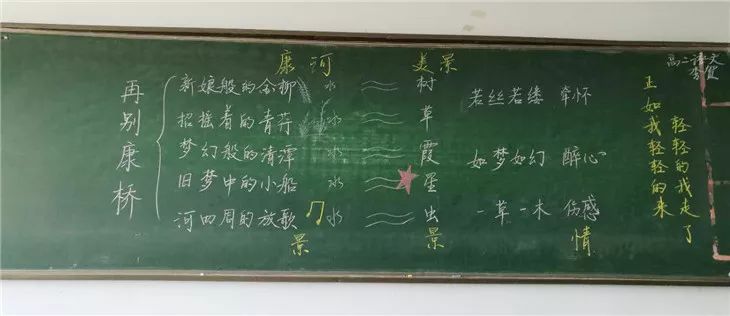 康河 美景
再别康桥
新娘般的金柳 水 树
招摇着的青荇 水 草
梦幻般的清潭 水 霞
旧梦中的小船 水 星
河四周的放歌 水 虫
景 景 情
若丝若缕 牵怀
如梦如幻 醉心
一草一木 伤感
轻轻的我走了
正如我轻轻的来
高二语文